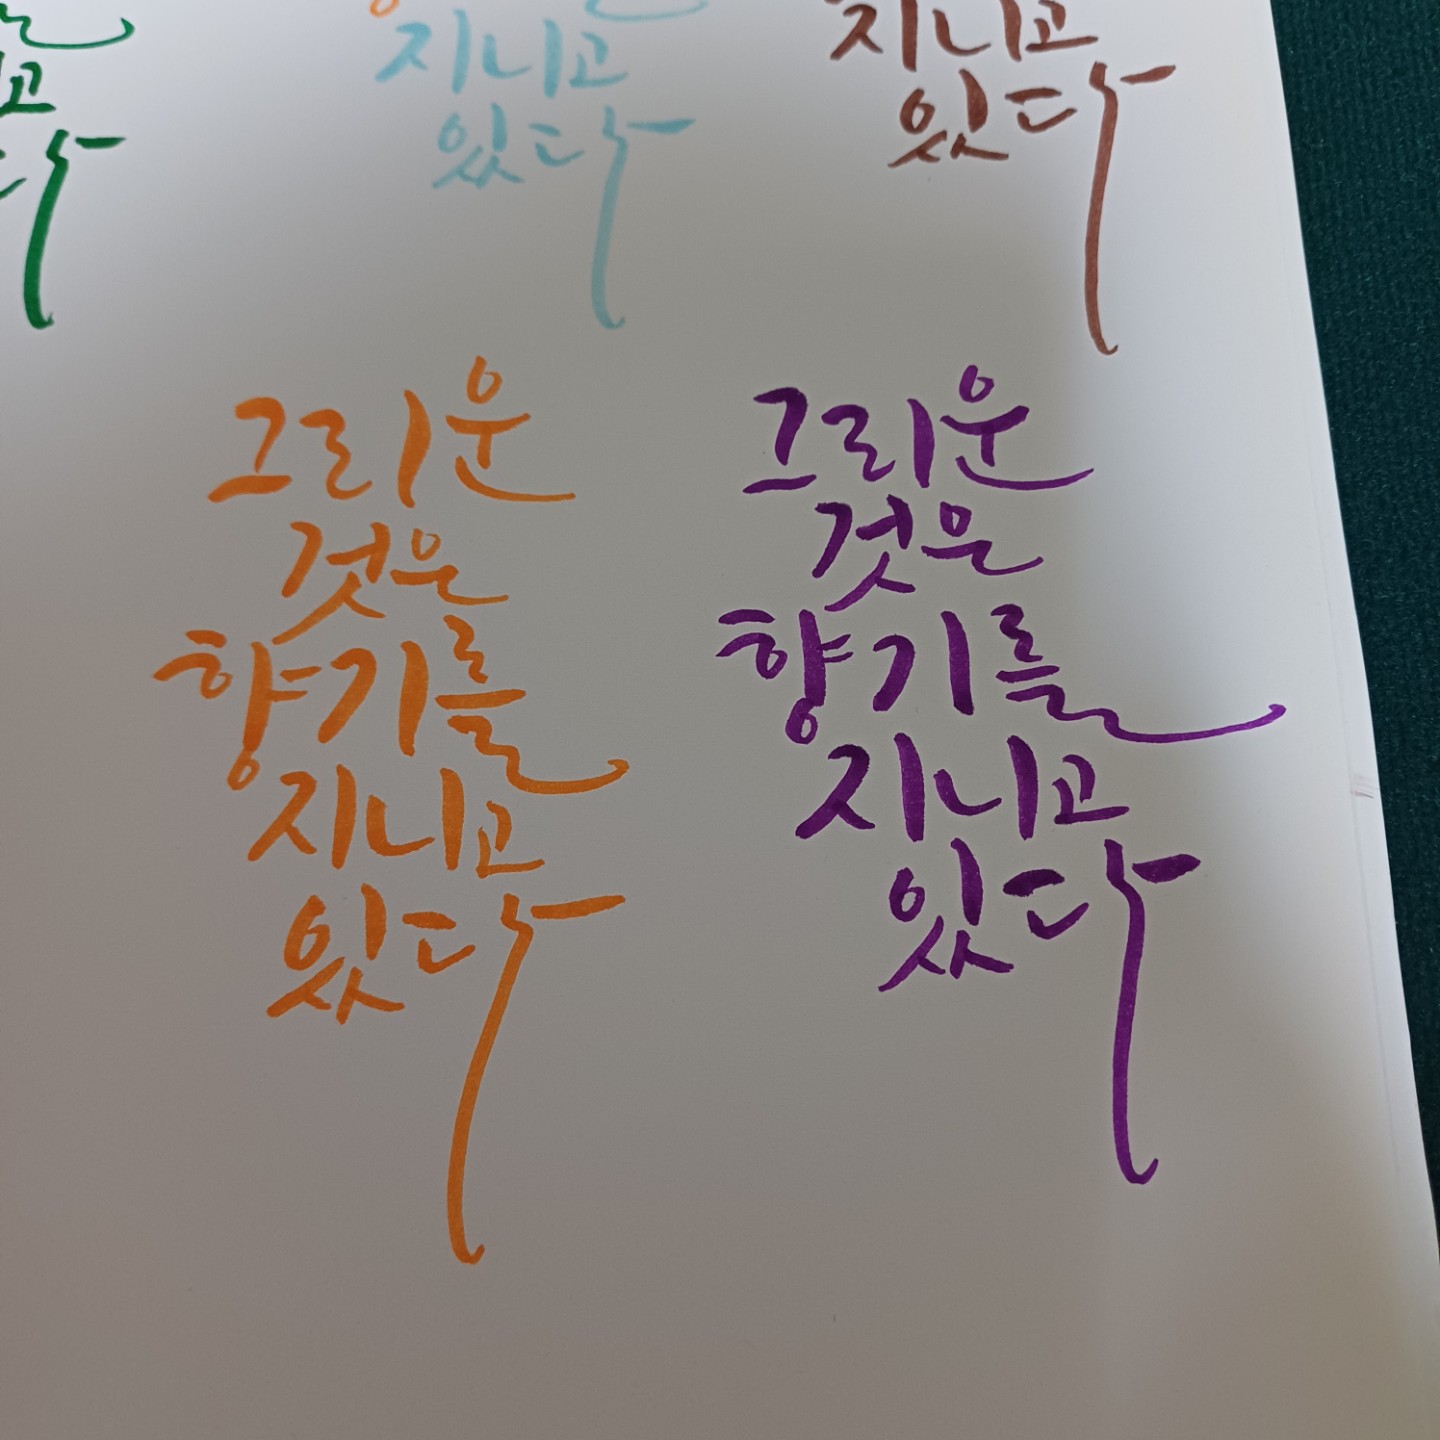 지니고
있다
지니고
있다
그리운
것은
향기를
지니고
있다
그리운
것은
향기를
지니고
있다